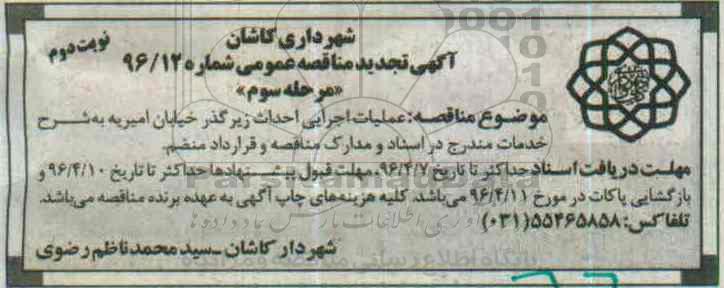 شهرداری کاشان
نوبت دوم
آگهی تجدید مناقصه عمومی شماره ۹۶/۱۲
«مرحله سوم»
موضوع مناقصه: عملیات اجرایی احداث زیرگذر خیابان امیریه به شرح
خدمات مندرج در اسناد و مدارک مناقصه و قرارداد منضم.
مهلت دریافت اسناد حداکثر تا تاریخ ۹۶/۴/۷، مهلت قبول پیشنهادها حداکثر تا تاریخ ۹۶/۴/۱۰ و
بازگشایی پاکات در مورخ ۹۶/۴/۱۱ می‌باشد. کلیه هزینه‌های چاپ آگهی به عهده برنده مناقصه می‌باشد.
تلفاکس: ۵۵۴۶۵۸۵۸(۰۳۱)
شهردار کاشان ـ سید محمد ناظم رضوی